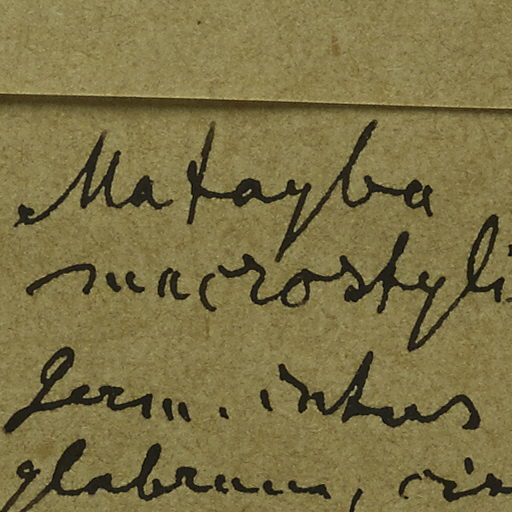 Matayba
macrostyli
Germ. intus
glabrum, cir